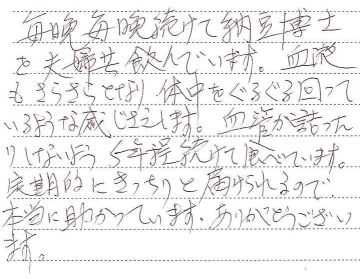 毎晩毎晩続けて納豆博士
を夫婦共飲んでいます。血液
もさらさらとなり体中をぐるぐる回って
いるような感じさえします。血管が詰った
りしないよう5年程続けて食べています。
定期的にきっちりと届けられるので
本当に助かっています。ありがとうござい
ます。